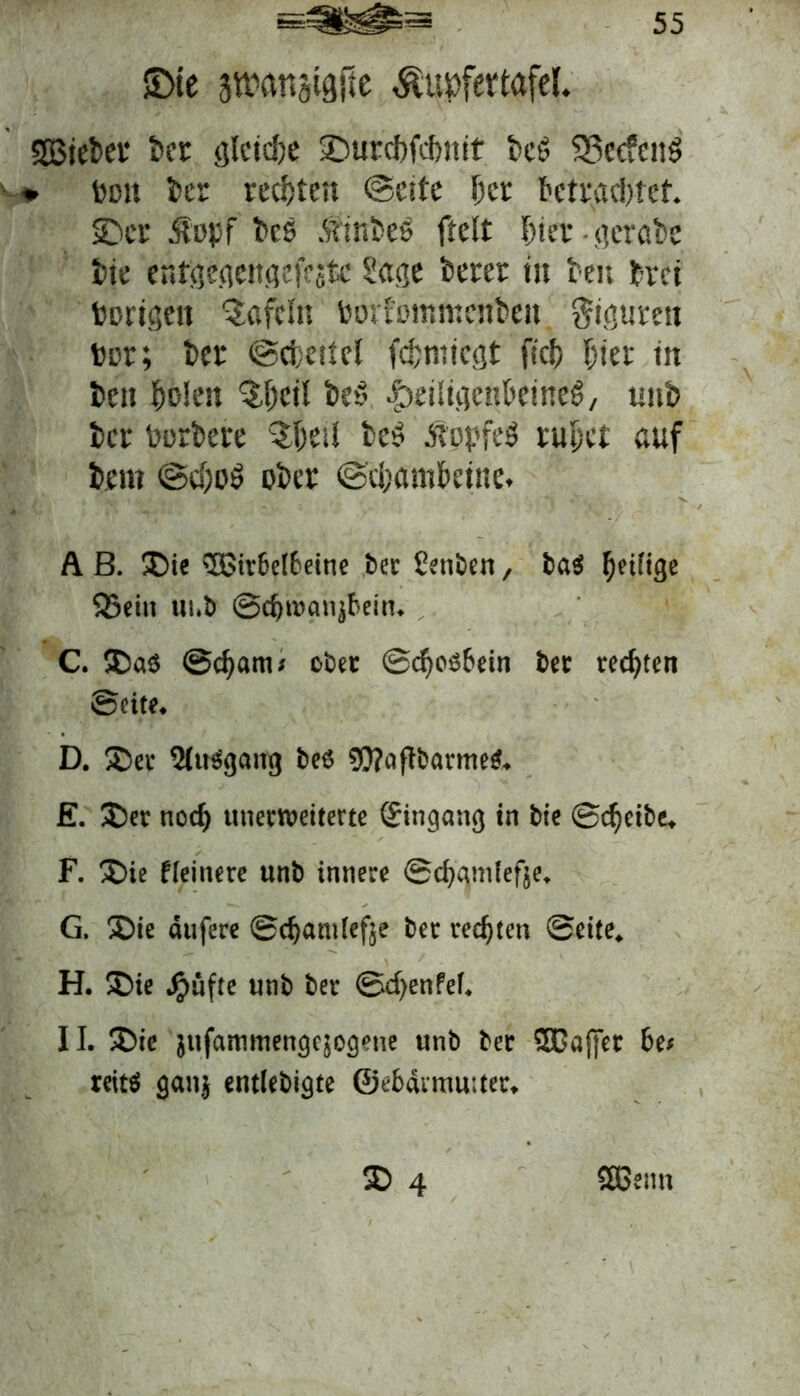 55
Die zwanzigste Kupfertafel.
Wieder der gleiche Durchschnit des Beckens
von der rechten Seite her betrachtet.
Der Kopf des Kindes stelt hier gerade
die entgegengesezte Lage derer in den drei
vorigen Tafeln vorkommenden Figuren
vor; der Scheitel schmiegt sich hier in
den holen Theil des Heiligenbeines, und
der vordere Theil des Kopfes ruhet auf
dem Schos oder Schambeine.
A B. Die Wirbelbeine der Lenden, das heilige
Bein und Schwanzbein.
C. Das Scham- oder Schosbein der rechten
Seite.
D. Der Ausgang des Mastdarmes.
E. Der noch unerweiterte Eingang in die Scheide.
F. Die kleinere und innere Schamlefze.
G. Die äusere Schamlefze der rechten Seite.
H. Die Hüfte und der Schenkel.
II. Die zusammengezogene und der Wasser be-
reits ganz entledigte Gebärmutter.
D 4 Wenn